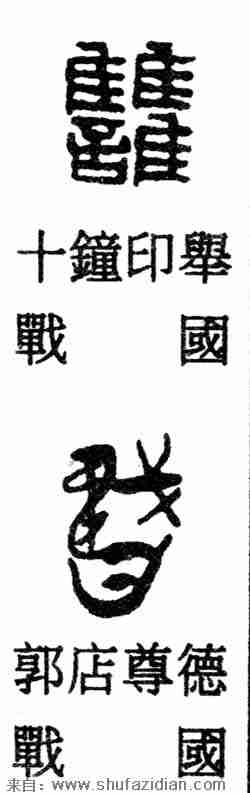 十鐘印舉
戰國
郭店尊德
戰國
来自：www.shufazidian.com